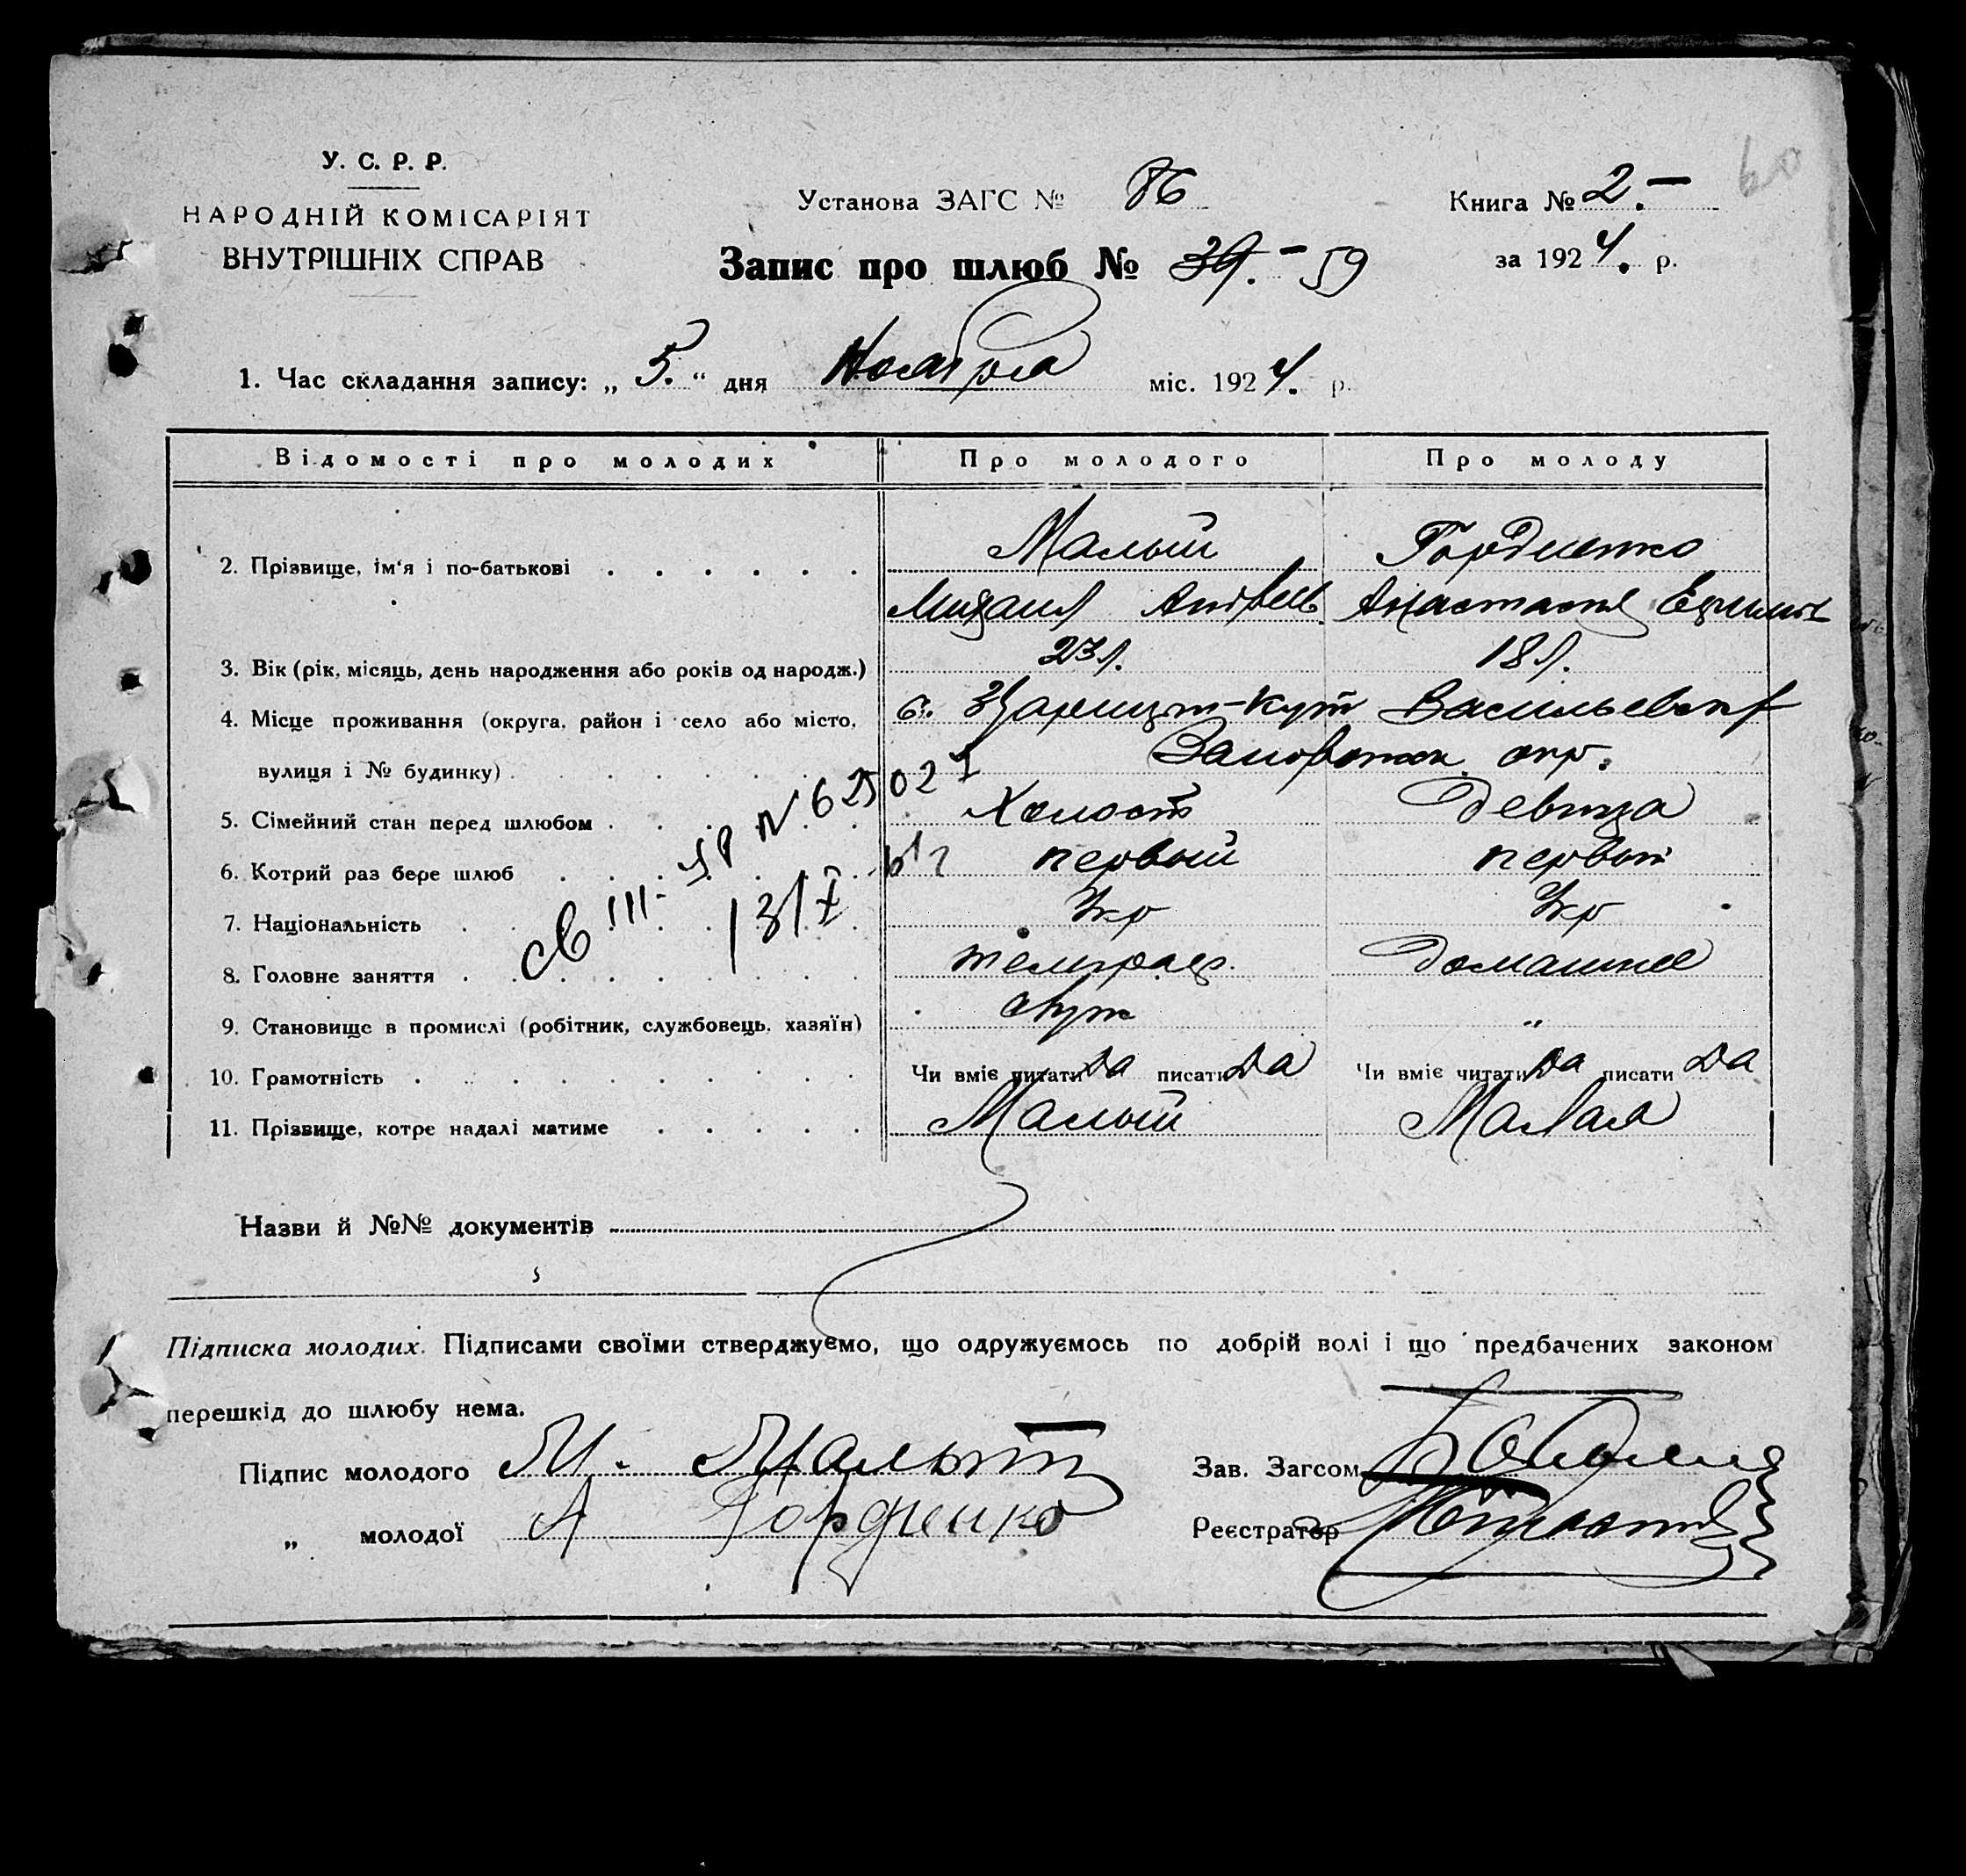 У. С. Р. Р.
НАРОДНІЙ КОМІСАРІЯТ
ВНУТРІШНІХ СПРАВ
Установа ЗАГС № 86
Книга № 2.—
60
Запис про шлюб № 39.— 59
за 1924. р.
1. Час складання запису: „ 5. “ дня Ноября міс. 1924. р.
Відомості про молодих Про молодого Про молоду
2. Прізвище, ім'я і по-батькові . . . . . . Малый Гордиенко
Михаил Андреев. Анастасия
3. Вік (рік, місяць, день народження або років од народж.) 23 л. 18 л.
4. Місце проживання (округа, район і село або місто, с. Царицын-Кут Васильевск
вулиця і № будинку) . Запорожск. окр.
5. Сімейний стан перед шлюбом . Холост Девица
6. Котрий раз бере шлюб . первый первый
7. Національність . Укр Укр
8. Головне заняття . телеграф. Домашнее
9. Становище в промислі (робітник, службовець, хазяїн) „
10. Грамотність . Чи вміє читати Да писати Да Чи вміє читати Да писати Да
11. Прізвище, котре надалі матиме . . . . . Малый Малая
№ 625021
13/X
Назви й №№ документів
Підписка молодих. Підписами своїми стверджуємо, що одружуємось по добрій волі і що предбачених законом
перешкід до шлюбу нема.
Підпис молодого М. Малый
Зав. Загсом
„ молодої А Гордиенко
Реєстратор